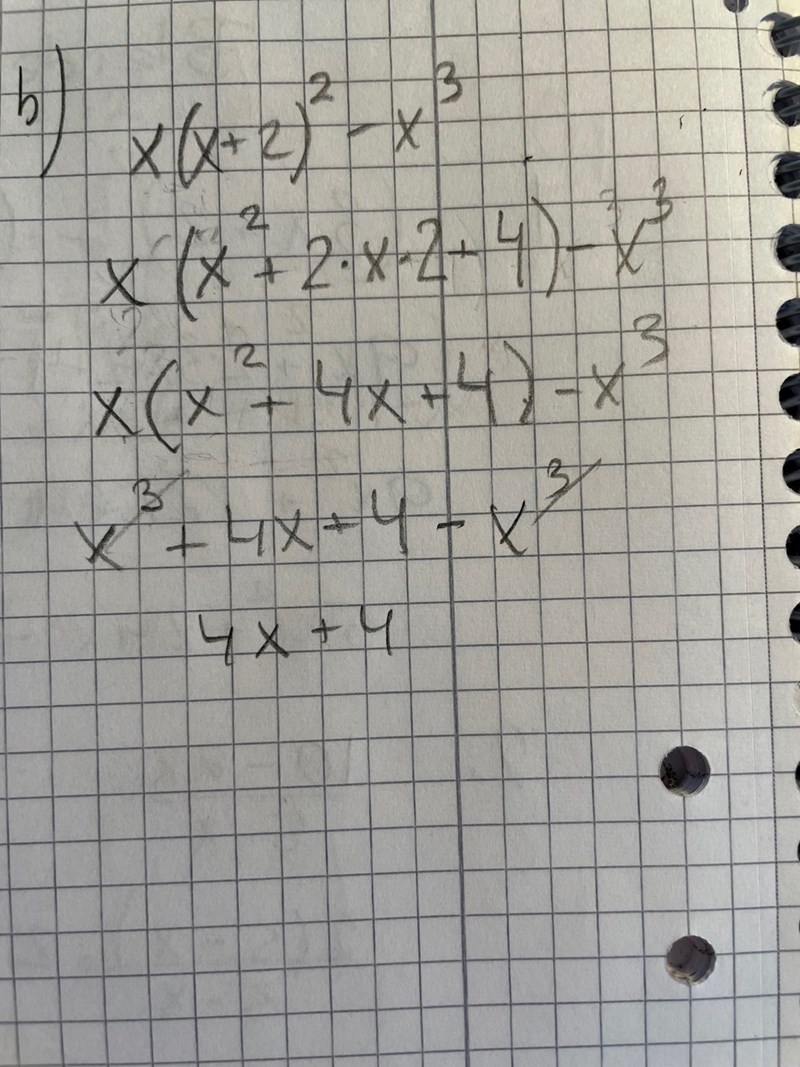 b) x(x+2)² - x³
x (x² + 2·x·2 + 4) - x³
x(x² + 4x + 4) - x³
x³ + 4x + 4 - x³
4x + 4